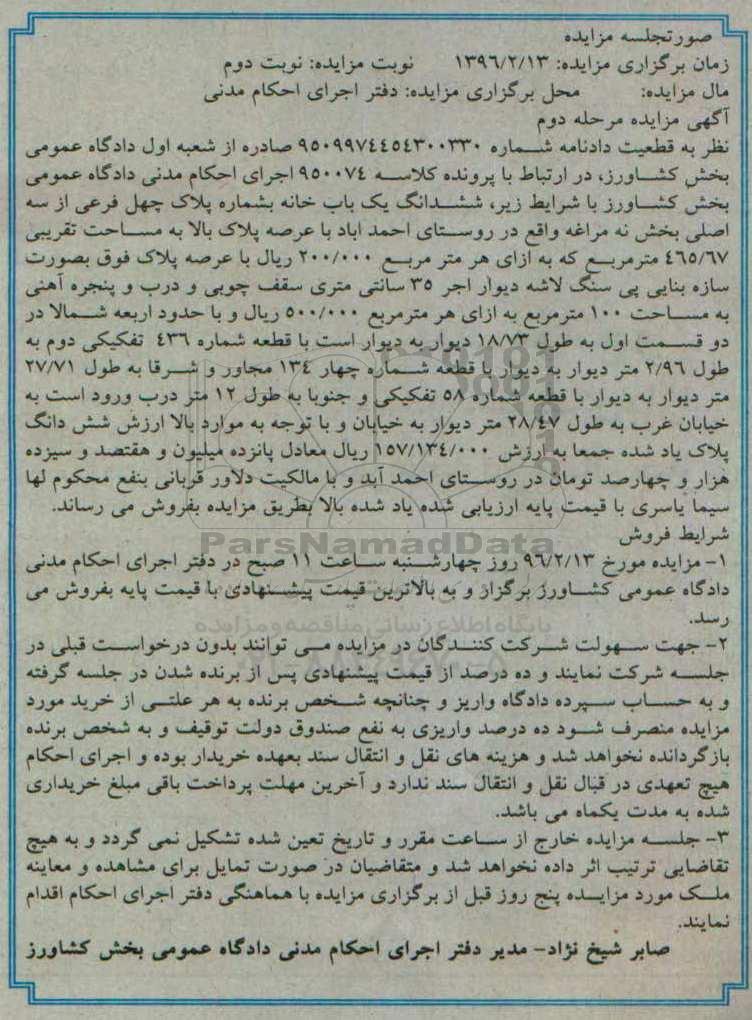 صورتجلسه مزایده
زمان برگزاری مزایده: ۱۳۹۶/۲/۱۳ نوبت مزایده: نوبت دوم
مال مزایده: محل برگزاری مزایده: دفتر اجرای احکام مدنی
آگهی مزایده مرحله دوم
نظر به قطعیت دادنامه شماره ۹۵۰۹۹۷۴٤٥٤۳۰۰۳۳۰ صادره از شعبه اول دادگاه عمومی
بخش کشاورز، در ارتباط با پرونده کلاسه ۹۵۰۰۷٤ اجرای احکام مدنی دادگاه عمومی
بخش کشاورز با شرایط زیر، ششدانگ یک باب خانه بشماره پلاک چهل فرعی از سه
اصلی بخش نه مراغه واقع در روستای احمد اباد با عرصه پلاک بالا به مساحت تقریبی
٤٦٥/٦٧ مترمربع که به ازای هر متر مربع ۲۰۰/۰۰۰ ریال با عرصه پلاک فوق بصورت
سازه بنایی پی سنگ لاشه دیوار اجر ۳۵ سانتی متری سقف چوبی و درب و پنجره آهنی
به مساحت ۱۰۰ مترمربع به ازای هر مترمربع ۵۰۰/۰۰۰ ریال و با حدود اربعه شمالا در
دو قسمت اول به طول ۱۸/۷۳ دیوار به دیوار است با قطعه شماره ٤٣٦ تفکیکی دوم به
طول ۲/۹٦ متر دیوار به دیوار با قطعه شماره چهار ۱۳٤ مجاور و شرقا به طول ۲۷/۷۱
متر دیوار به دیوار با قطعه شماره ۵۸ تفکیکی و جنوبا به طول ۱۲ متر درب ورود است به
خیابان غرب به طول ۲۸/٤۷ متر دیوار به خیابان و با توجه به موارد بالا ارزش شش دانگ
پلاک یاد شده جمعا به ارزش ۱۵۷/۱۳٤/۰۰۰ ریال معادل پانزده میلیون و هفتصد و سیزده
هزار و چهارصد تومان در روستای احمد آبد و با مالکیت دلاور قربانی بنفع محکوم لها
سیما یاسری با قیمت پایه ارزیابی شده یاد شده بالا بطریق مزایده بفروش می رساند.
شرایط فروش
۱- مزایده مورخ ۹٦/۲/۱۳ روز چهارشنبه ساعت ۱۱ صبح در دفتر اجرای احکام مدنی
دادگاه عمومی کشاورز برگزار و به بالاترین قیمت پیشنهادی با قیمت پایه بفروش می
رسد.
۲- جهت سهولت شرکت کنندگان در مزایده می توانند بدون درخواست قبلی در
جلسه شرکت نمایند و ده درصد از قیمت پیشنهادی پس از برنده شدن در جلسه گرفته
و به حساب سپرده دادگاه واریز و چنانچه شخص برنده به هر علتی از خرید مورد
مزایده منصرف شود ده درصد واریزی به نفع صندوق دولت توقیف و به شخص برنده
بازگردانده نخواهد شد و هزینه های نقل و انتقال سند بعهده خریدار بوده و اجرای احکام
هیچ تعهدی در قبال نقل و انتقال سند ندارد و آخرین مهلت پرداخت باقی مبلغ خریداری
شده به مدت یکماه می باشد.
۳- جلسه مزایده خارج از ساعت مقرر و تاریخ تعین شده تشکیل نمی گردد و به هیچ
تقاضایی ترتیب اثر داده نخواهد شد و متقاضیان در صورت تمایل برای مشاهده و معاینه
ملک مورد مزایده پنج روز قبل از برگزاری مزایده با هماهنگی دفتر اجرای احکام اقدام
نمایند.
صابر شیخ نژاد- مدیر دفتر اجرای احکام مدنی دادگاه عمومی بخش کشاورز
ParsNamadData
پایگاه اطلاع رسانی مناقصه و مزایده